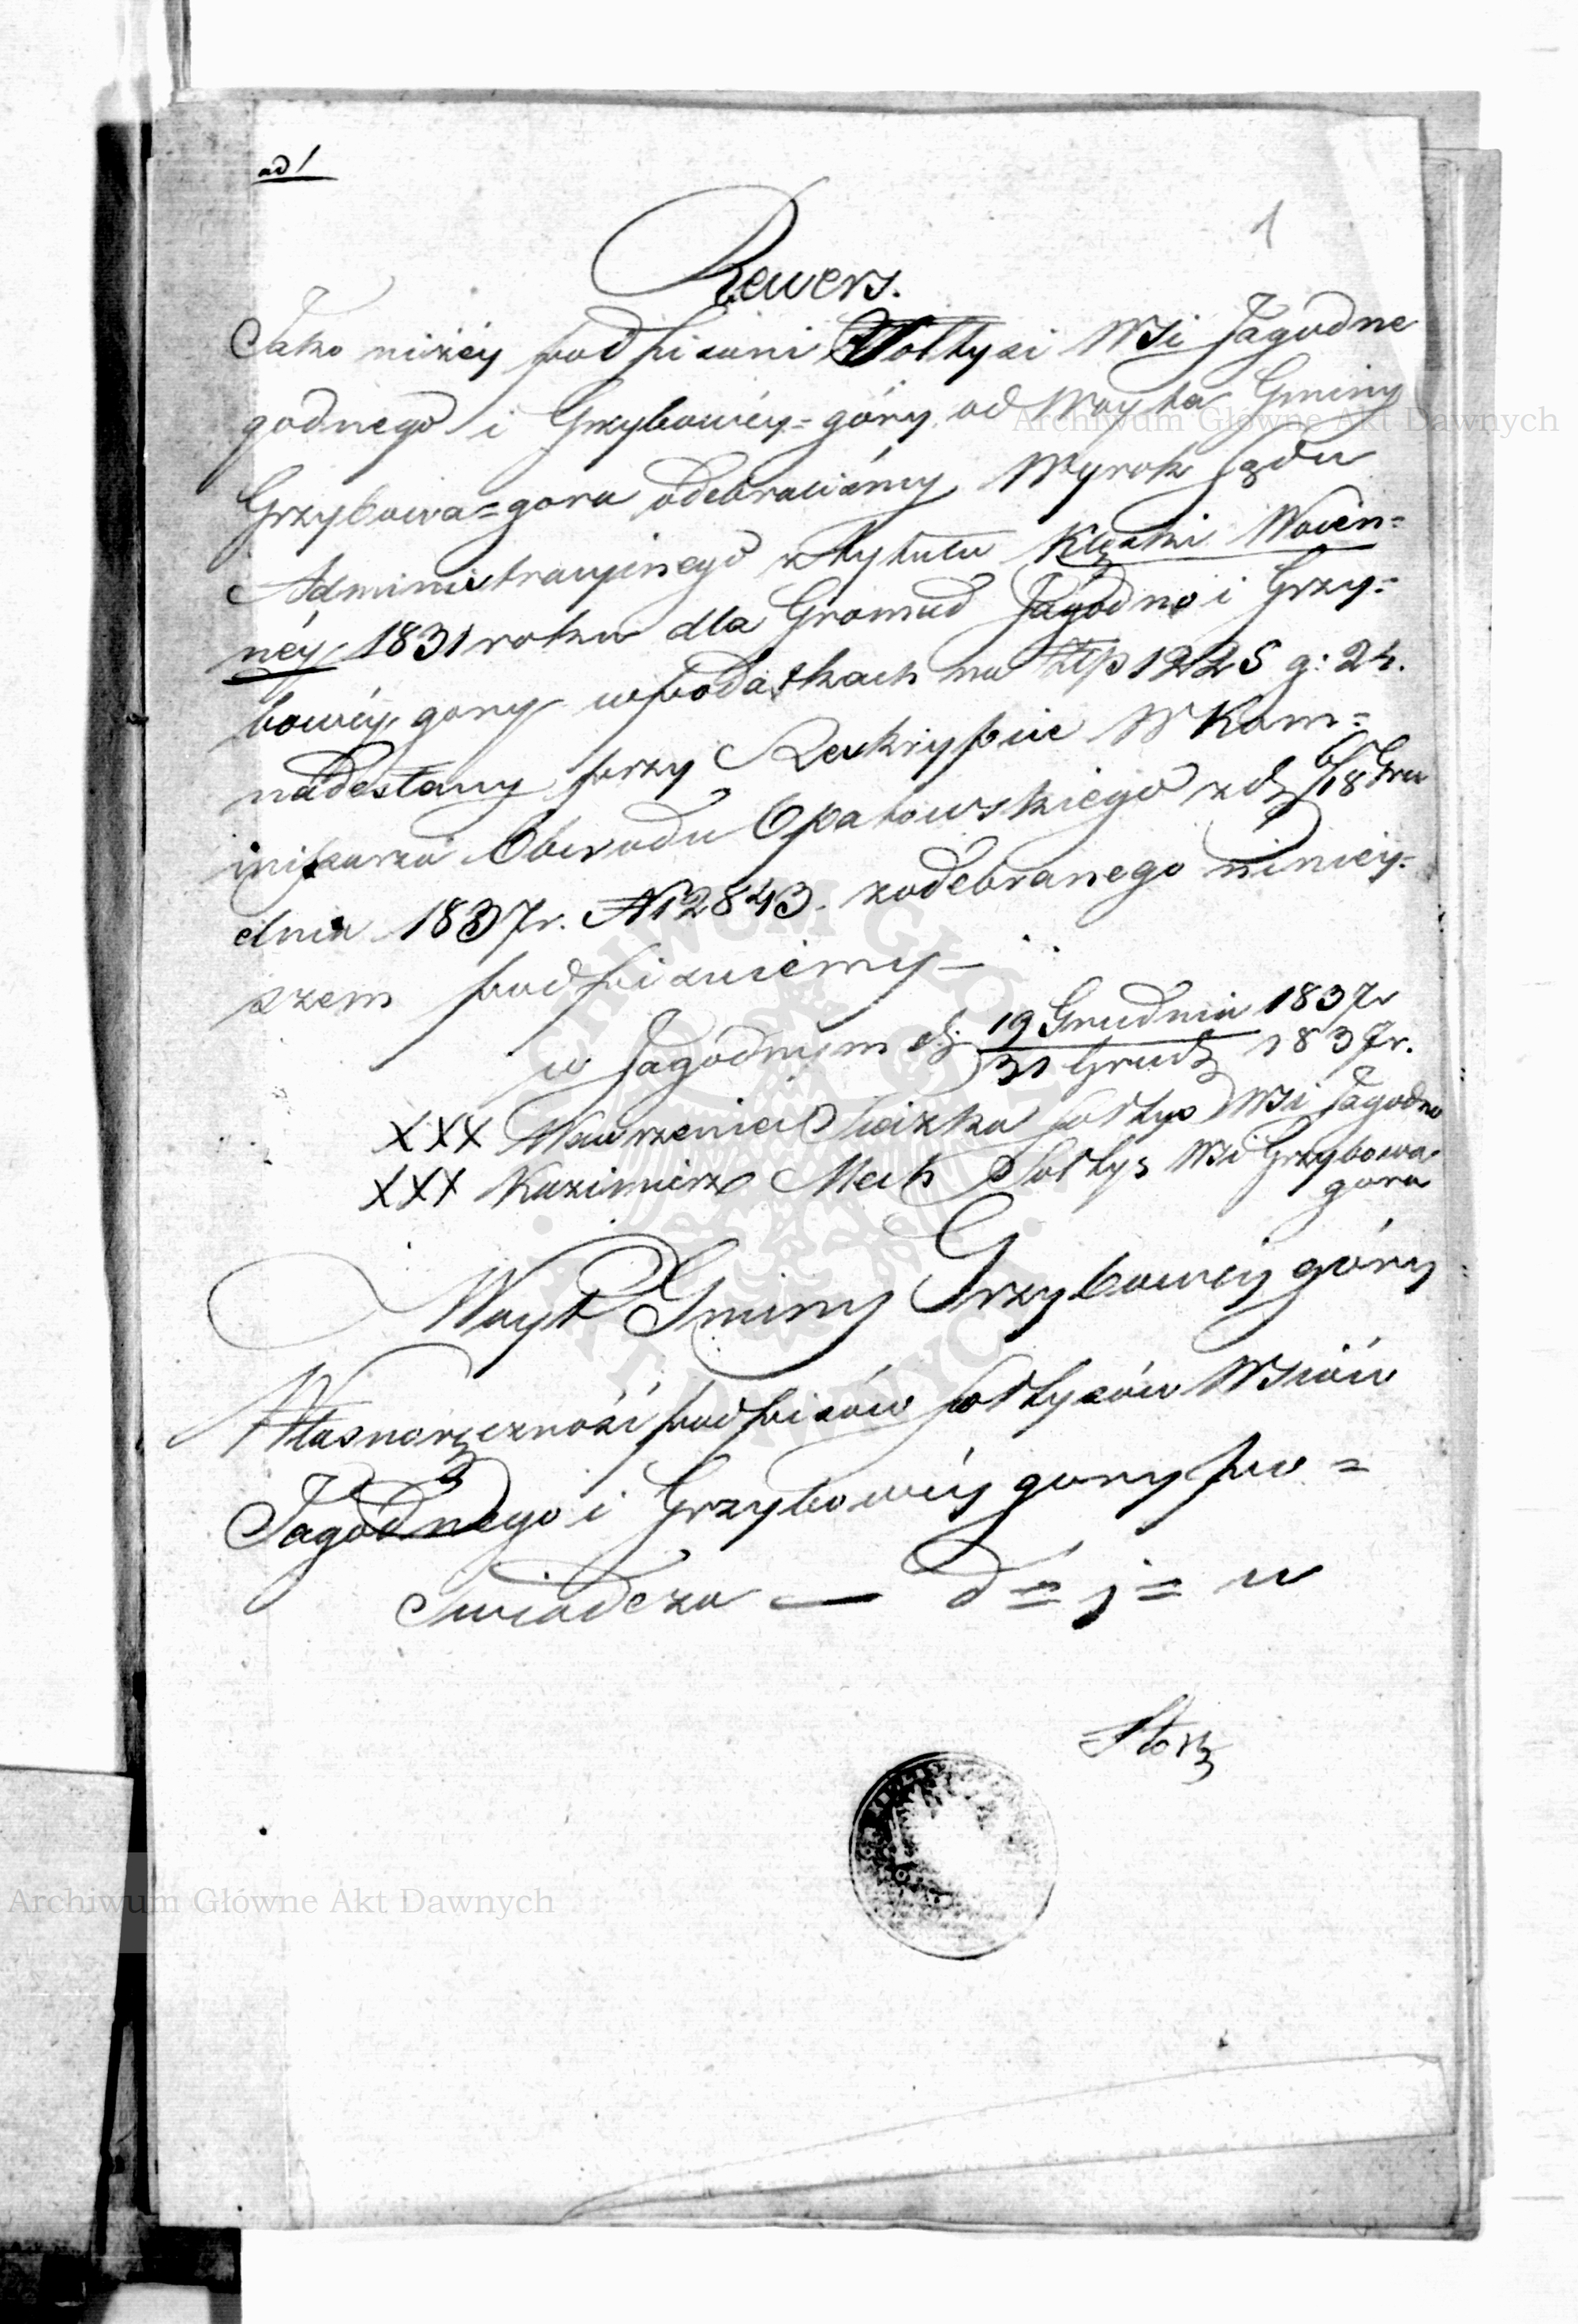 ad 1
1
Rewers.
Jako niżéy podpisani Sołtysi Wsi Jagodne
godnego i Grzybowéy=góry od Woyta Gminy
Grzybowa=gora odebraliśmy Wyrok Sądu
Administracyinego z tytułu Klęski Woien=
néy 1831 roku dla Gromad Jagodne i Grzy=
bowéy gory w podatkach na Złp 1225 g: 24.
nadesłany przy Reskrypcie W Kom=
misarza Obwodu Opatowskiego z d 6/18 Gru
dnia 1837r. N 12843. z odebranego niniey=
szem podpisuiemy—
w Jagodnym d: 19 Grudnia 1837r
31 Grud 1837r.
XXX Wawrzeniec Sieczka Sołtys Wsi Jagodne
XXX Kazimierz Mech Sołtys Wsi Grzybowa
gora
Woyt Gminy Grzybowéy góry
Własnoręczność podpisów Sołtysów Wsiów
Jagodnego i Grzybowéy gory po=
swiadcza — d = j = w
Archiwum Główne Akt Dawnych
Archiwum Główne Akt Dawnych
ARCHIWUM GŁÓWNE AKT DAWNYCH